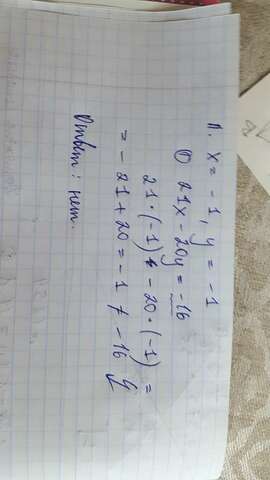 П. x = -1, y = -1
① 21x - 20y = -16
21·(-1) - 20·(-1) =
= -21 + 20 = -1 ≠ -16
Ответ: нет.